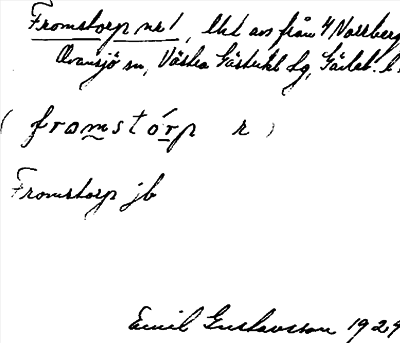 Fromstorp nr 1, lht avs från 4 Norrberg
Ovansjö sn, Västra Gästrikl tg, Gävleb. l.
( fromstórp r )
Fromstorp jb
Emil Gustavsson 1929